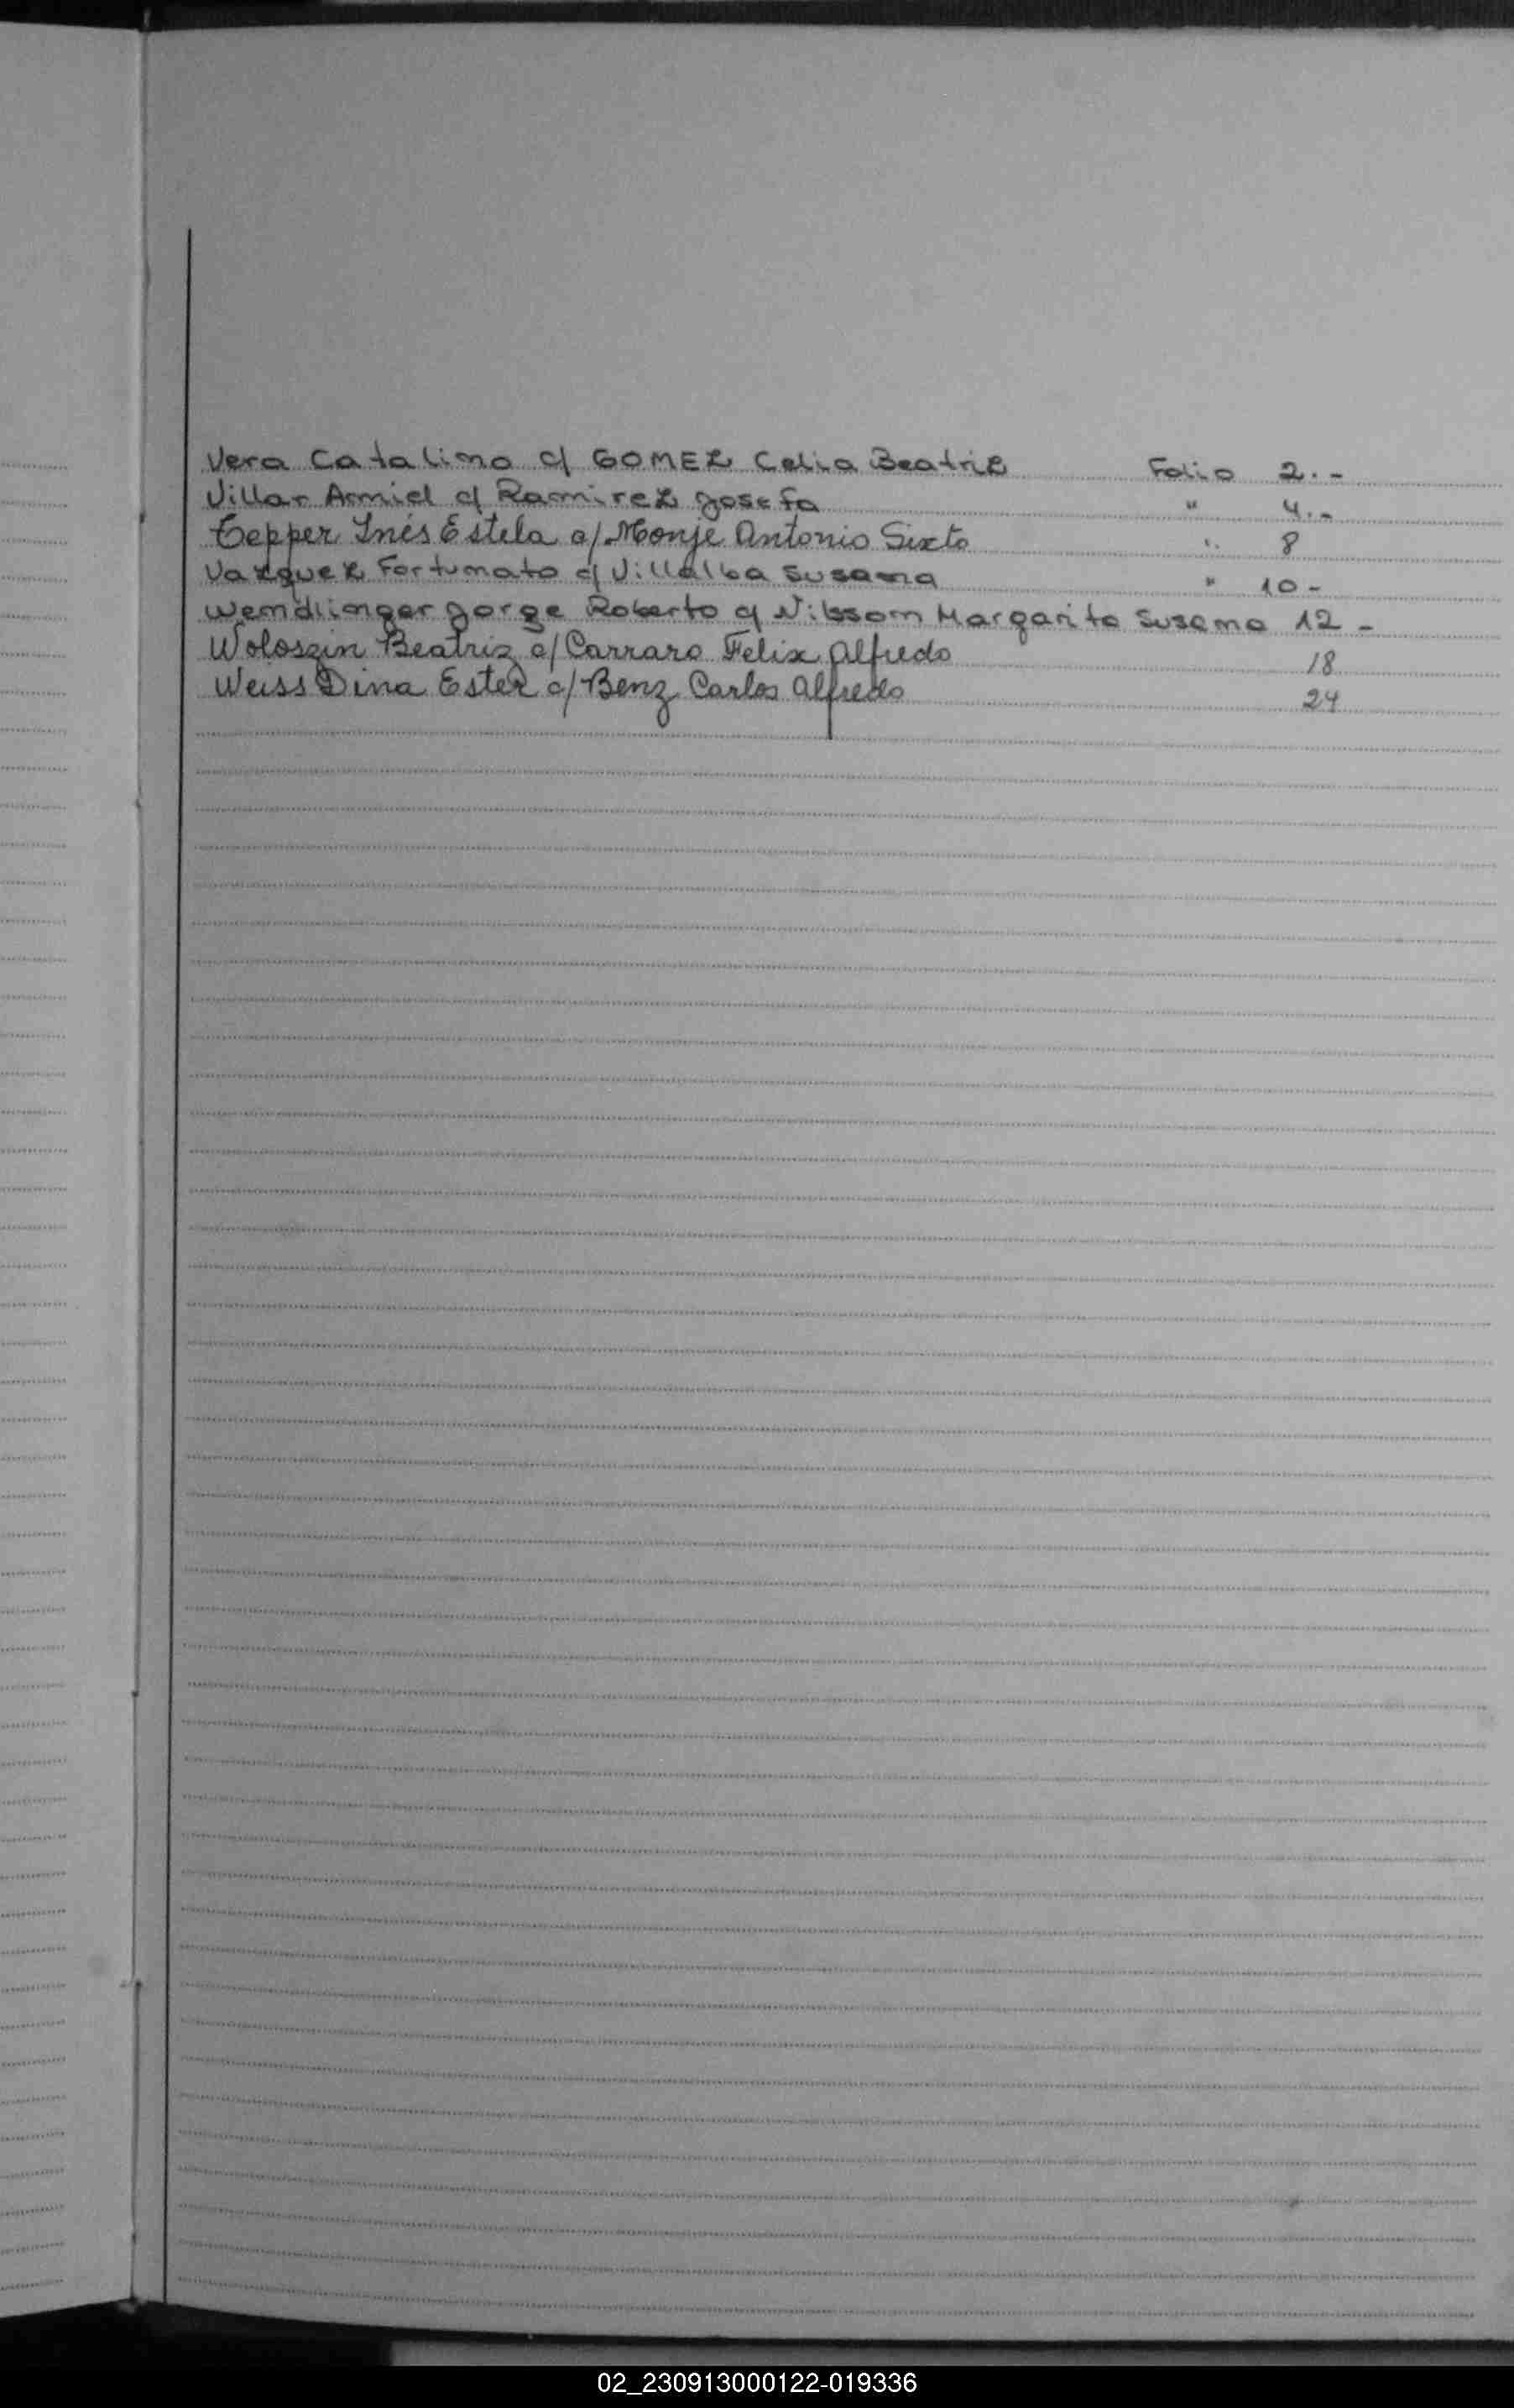 Vera Catalino c/ GOMEZ Celia Beatriz Folio 2.-
Villar Amiel c/ Ramirez Josefa " 4.-
Tepper Inés Estela c/ Monje Antonio Sixto " 8
Vazquez Fortunato c/ Villalba Susana " 10-
Wendlinger Jorge Roberto c/ Nilsson Margarita Susana 12-
Woloszin Beatriz c/ Carraro Felix Alfredo 18
Weiss Dina Ester c/ Benz Carlos Alfredo 24
02_230913000122-019336